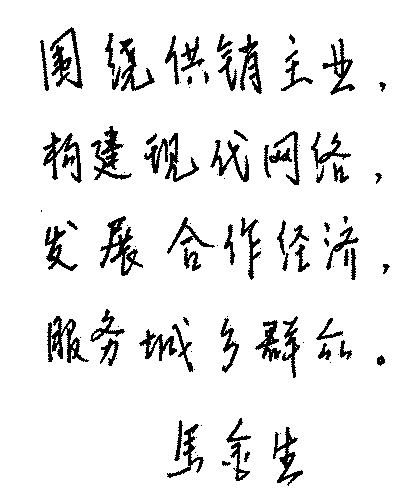 围绕供销主业，
构建现代网络，
发展合作经济，
服务城乡群众。
马金生